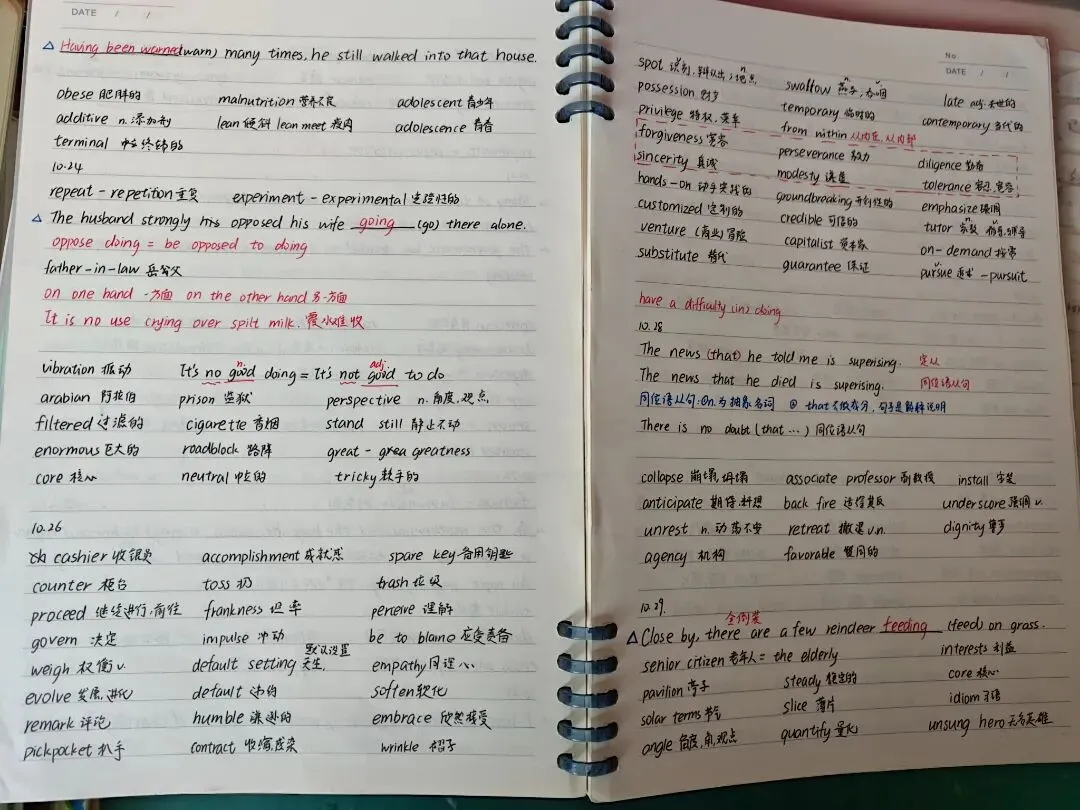 DATE / /
△ Having been warned(warn) many times, he still walked into that house.
obese 肥胖的 malnutrition 营养不良 adolescent 青少年
additive n. 添加剂 lean 倾斜 lean meet 瘦肉 adolescence 青春
terminal 终端的
10.24
repeat - repetition 重复 experiment - experimental 实验性的
△ The husband strongly opposed his wife going (go) there alone.
oppose doing = be opposed to doing
father-in-law 岳父
on one hand 一方面 on the other hand 另一方面
It is no use crying over spilt milk. 覆水难收
n. adj.
vibration 振动 It's no good doing = It's not good to do
arabian 阿拉伯 prison 监狱 perspective n. 角度,观点
filtered 过滤的 cigarette 香烟 stand still 静止不动
enormous 巨大的 roadblock 路障 great - greatness
core 核心 neutral 中立的 tricky 棘手的
10.26
cashier 收银员 accomplishment 成就感 spare key 备用钥匙
counter 柜台 toss 扔 trash 垃圾
proceed 继续进行,前往 frankness 坦率 perceive 理解
govern 决定 impulse 冲动 be to blame 应受责备
默认设置
weigh 权衡 v. default setting 天生, empathy 同理心
evolve 发展,进化 default 违约 soften 软化
remark 评论 humble 谦逊的 embrace 欣然接受
pickpocket 扒手 contract 收缩,感染 wrinkle 褶子
No.
DATE / /
spot 识别,辨认出;地点 n. swallow 燕子,吞咽 n. v. late adj. 去世的
possession 财产 temporary 临时的 contemporary 当代的
privilege 特权,荣幸 from within 从内在,从内部
forgiveness 宽容 perseverance 毅力 diligence 勤奋
sincerity 真诚 modesty 谦虚 tolerance 容忍,宽容
hands-on 动手实践的 groundbreaking 开创性的 emphasize 强调
customized 定制的 credible 可信的 tutor 家教 n. 指导,辅导 v.
venture (商业)冒险 capitalist 资本家 on-demand 按需
substitute 替代 guarantee 保证 pursue 追求 v. - pursuit
have a difficulty (in) doing
10.28
The news (that) he told me is superising. 定从
The news that he died is superising. 同位语从句
同位语从句:①n.为抽象名词 ② that不做成分,句子是解释说明
There is no doubt (that ...) 同位语从句
collapse 崩塌,坍塌 associate professor 副教授 install 安装
anticipate 期待,料想 back fire 适得其反 underscore 强调 v.
unrest n. 动荡不安 retreat 撤退 v.n. dignity 尊严
agency 机构 favorable 赞同的
10.29.
全倒装
△ Close by, there are a few reindeer feeding (feed) on grass.
senior citizen 老年人 = the elderly interests 利益
pavilion 亭子 steady 稳定的 core 核心
solar terms 节气 slice 薄片 idiom 习语
angle 角度,角,观点 quantify 量化 unsung hero 无名英雄